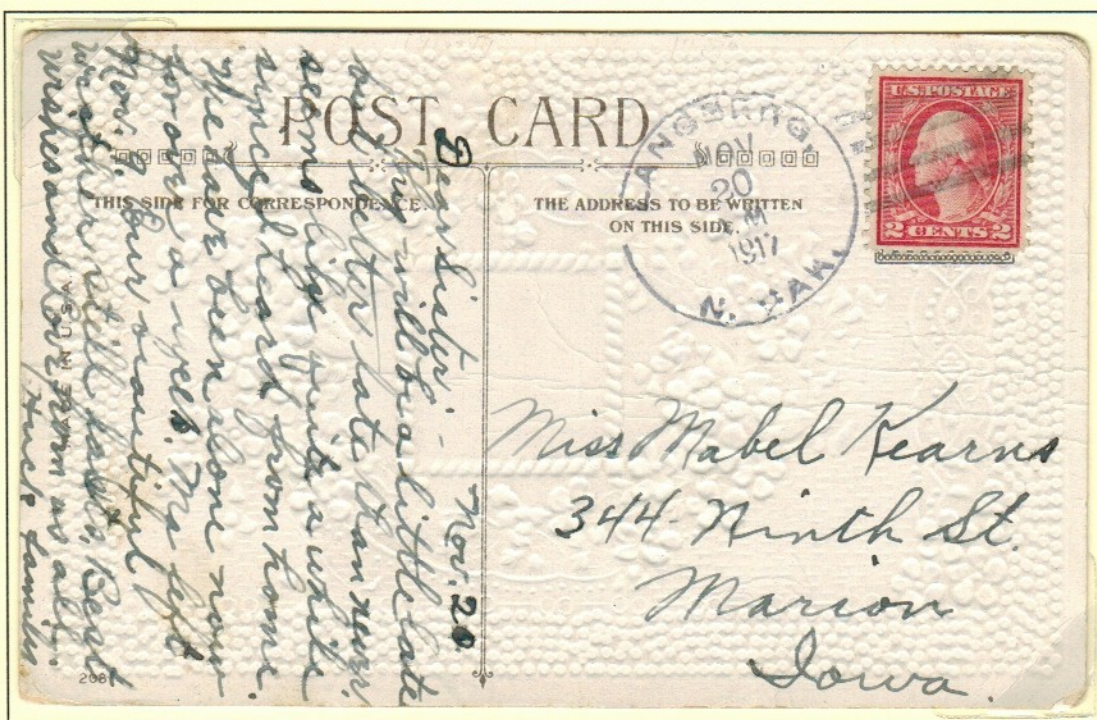 POST CARD
THIS SIDE FOR CORRESPONDENCE.
THE ADDRESS TO BE WRITTEN
ON THIS SIDE.
U.S. POSTAGE
2 CENTS 2
NOV
20
1917
N. DAK.
Miss Mabel Kearns
344 - Ninth St.
Marion
Iowa.
Nov. 20
Dear Sister: -
This will be a little late
but better late than never.
seems like quite a while
since I heard from home.
We have been alone now
for over a week. Ma left
Nov. 9. Our beautiful
weather still Best
wishes and love from us all.
Huck family
MADE IN U.S.A.
208